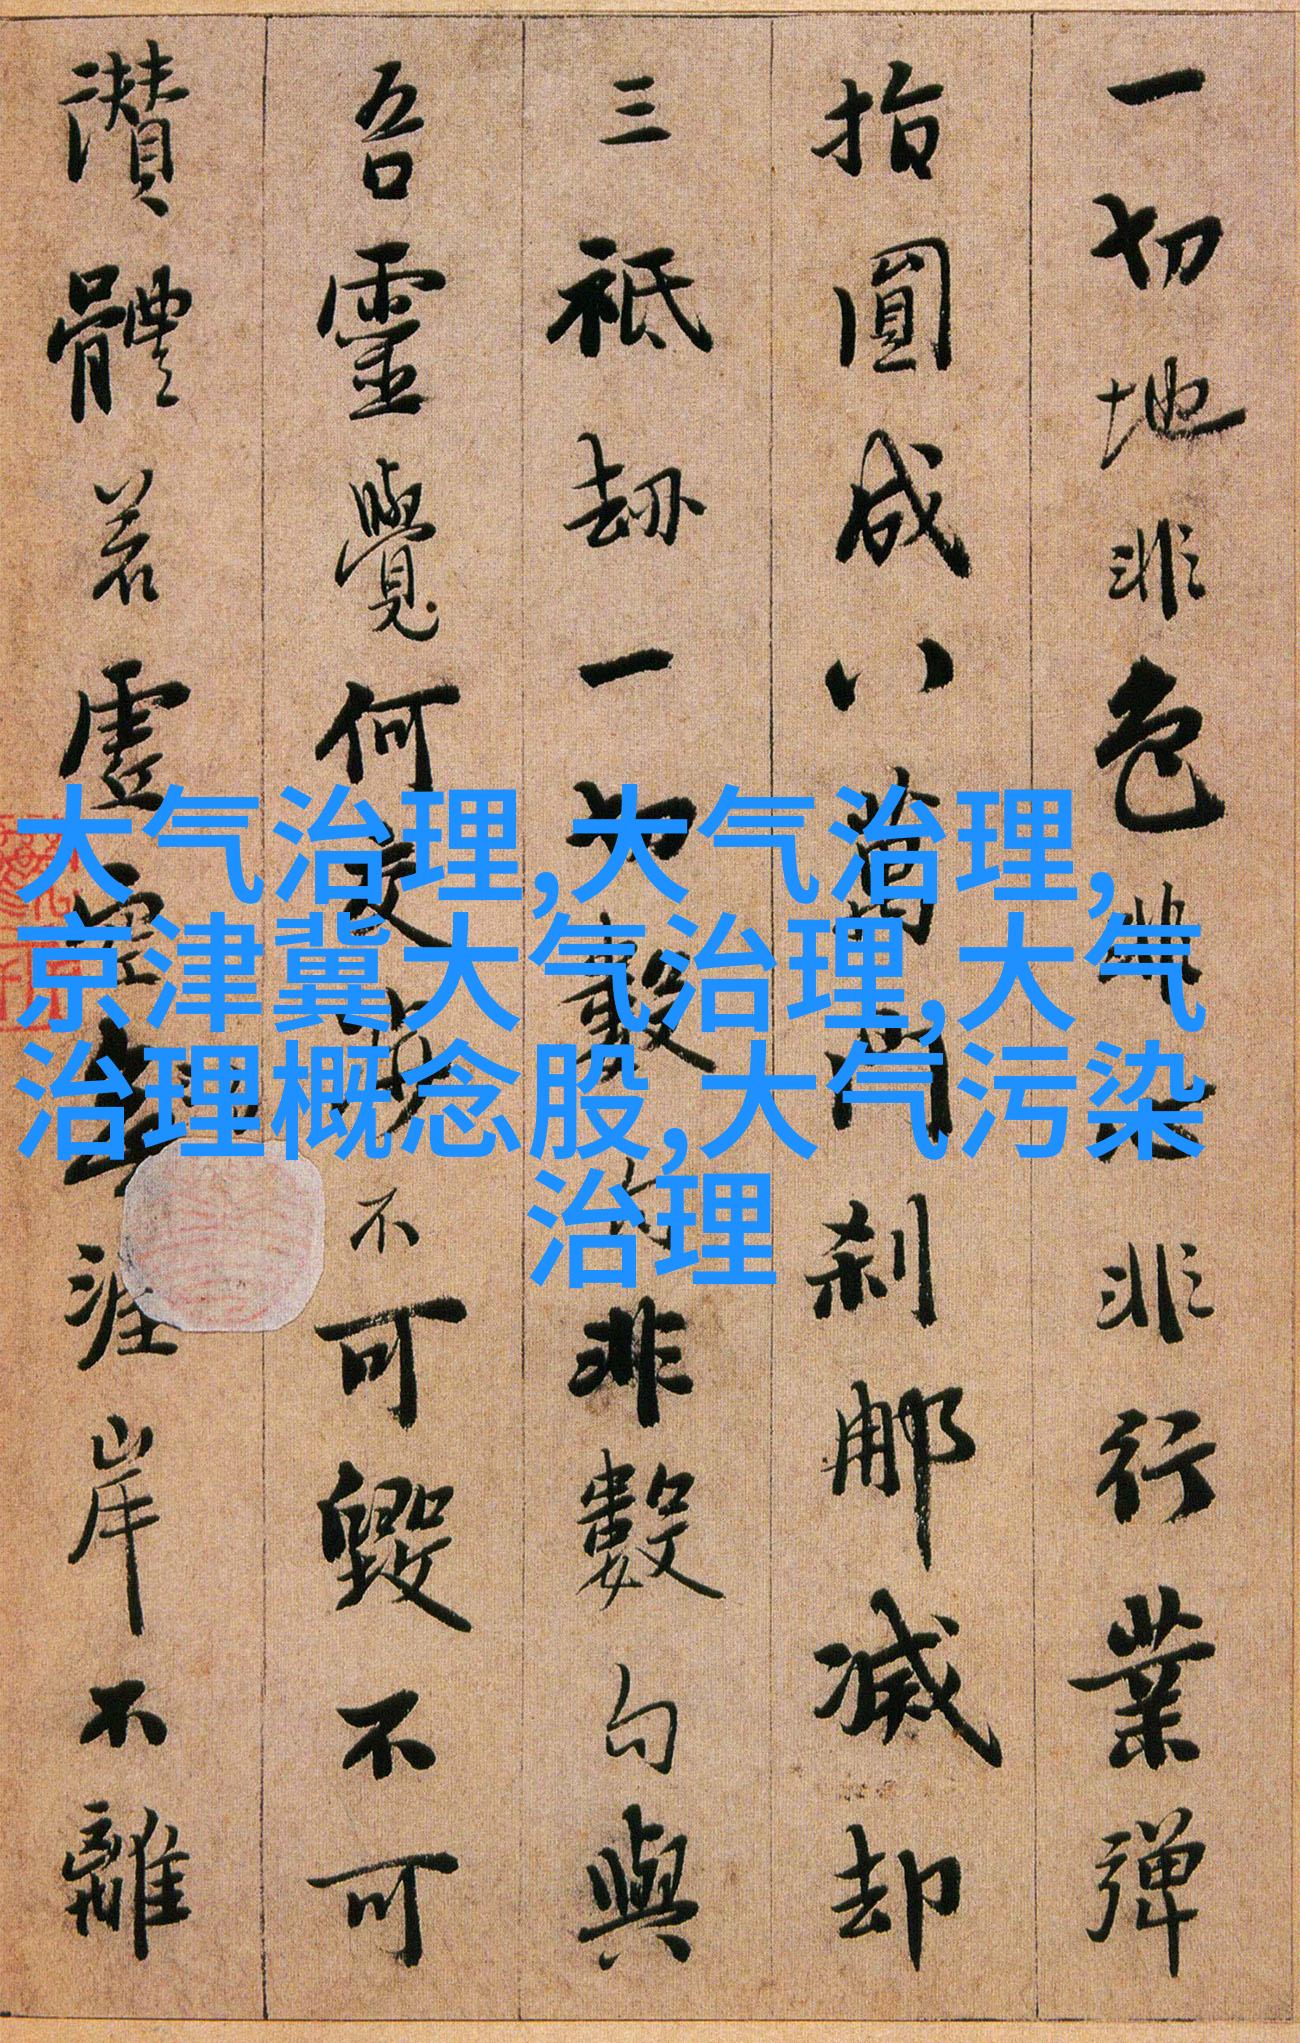 一切地非色非心非行業彈
指圓成八萬門刹那滅却
三祇劫一切數句非數句與
吾靈覺何交涉不可毀不可
讚體若虛空無涯岸不離
大气治理,大气治理,
京津冀大气治理,大气
治理概念股,大气污染
治理